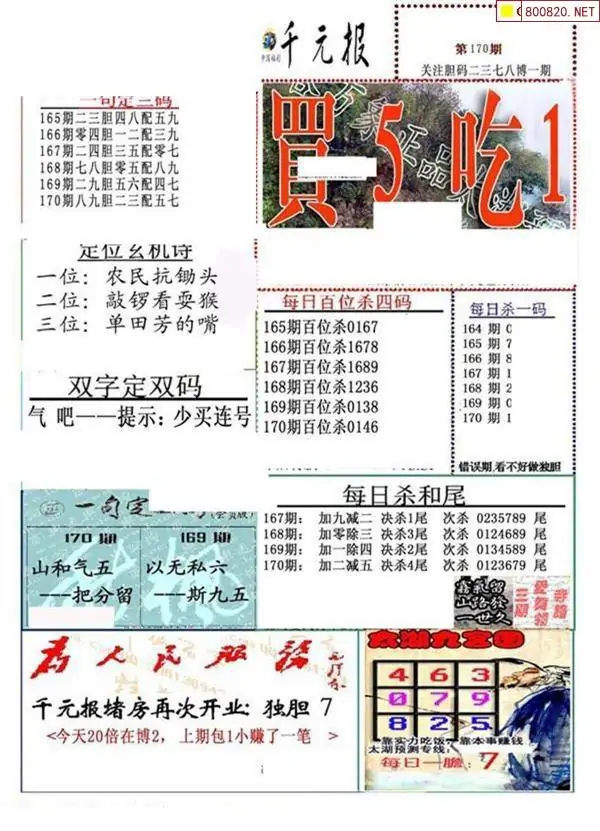 800820.NET
千元报
第170期
关注胆码二三七八博一期
一句定三码
165期二三胆四八配五九
166期零四胆一二配三九
167期二四胆三五配零七
168期七八胆零五配八九
169期二九胆五六配四七
170期八九胆二三配五七
買5吃1
定位玄机诗
一位：农民抗锄头
二位：敲锣看耍猴
三位：单田芳的嘴
每日百位杀四码
165期百位杀0167
166期百位杀1678
167期百位杀1689
168期百位杀1236
169期百位杀0138
170期百位杀0146
每日杀一码
164期0
165期7
166期8
167期1
168期2
169期0
170期1
错误期,看不好做独胆
双字定双码
气 吧——提示：少买连号
每日杀和尾
167期： 加九减二 决杀1尾 次杀 0235789 尾
168期： 加零除三 决杀3尾 次杀 0124689 尾
169期： 加一除四 决杀2尾 次杀 0134589 尾
170期： 加二减五 决杀4尾 次杀 0123679 尾
一句定
170期
山和气五
---把分留
169期
以无私六
---斯九五
为人民服务
千元报堵房再次开业：独胆 7
<今天20倍在博2，上期包1小赚了一笔 >
太湖九宫图
4 6 3
0 7 9
8 2 5
靠实力吃饭，靠本事赚钱
太湖预测专线：
每日一胆：7